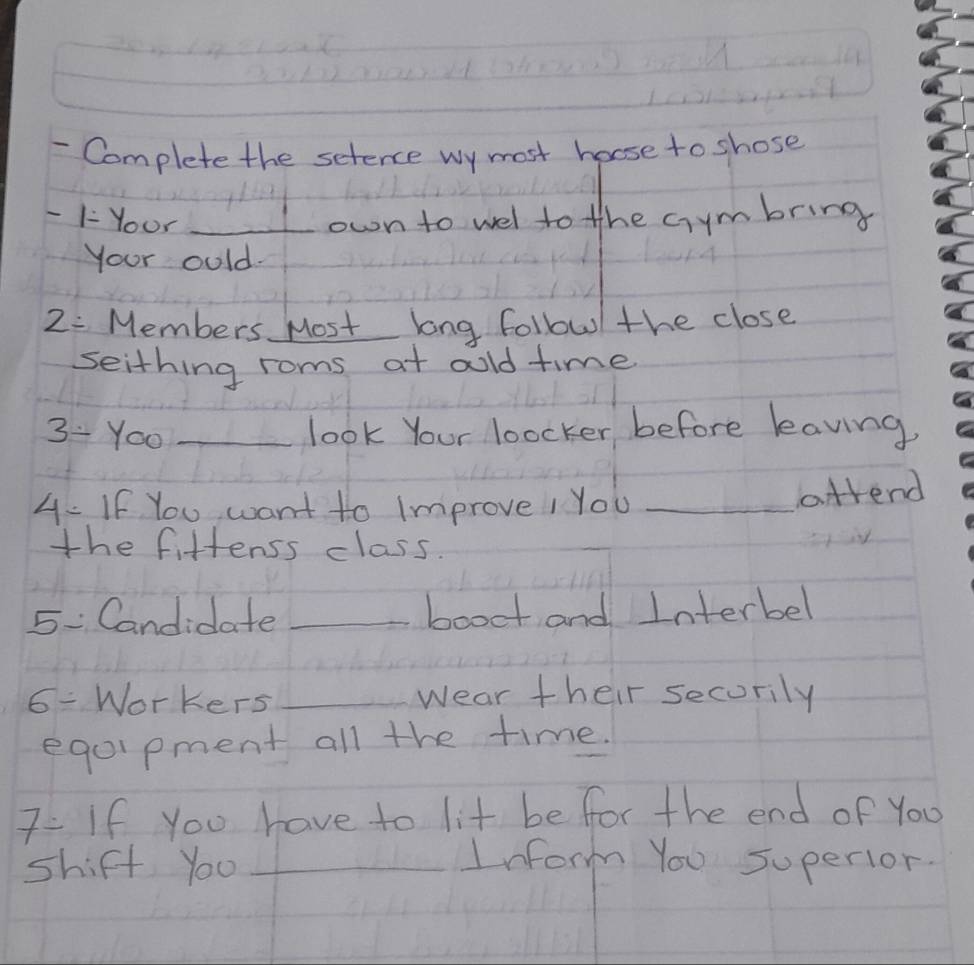 - Complete the setence wy most hoose to shose
- 1= Your ____ own to wel to the Gym bring
Your ould.
2= Members Most long follow the close
seithing roms at ould time
3= Yoo ____ look Your loocker before leaving
4= If You want to Improve, You ____ attend
the fittenss class.
5= Candidate ____ booct and Interbel
6= Workers ____ Wear their securily
eqoipment all the time.
7= If You have to lit be for the end of You
Shift You ____ Inform You Superior.